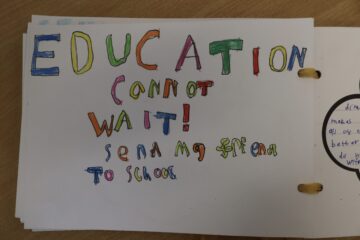 EDUCATION
CANNOT
WAIT!
Send My friend
To School
makes
better